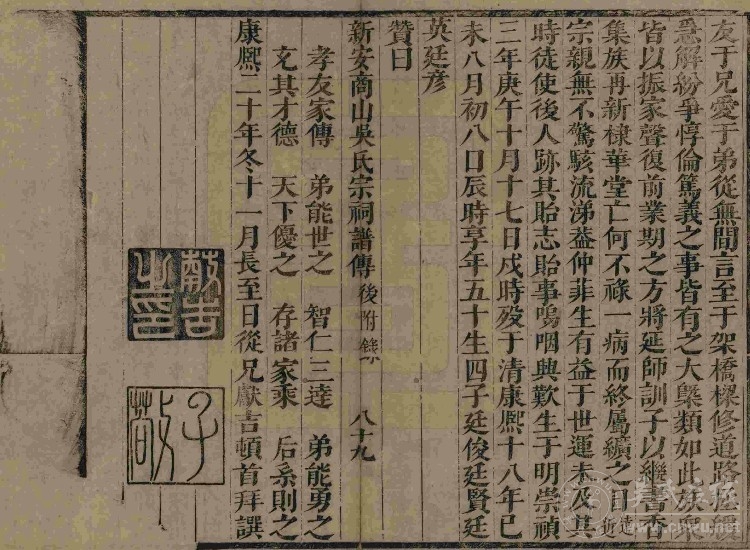 友于兄愛于弟從無間言至于架橋樑修道路
忿解紛爭惇倫篤義之事皆有之大槩類如此族
皆以振家聲復前業期之方將延師訓子以繼書香
集族再新棣華堂亡何不祿一病而終屬纊之日
宗親無不驚駭流涕葢仲菲生有益于世運未及其
時徒使後人跡其貽志貽事嗚咽興歎生于明崇禎
三年庚午十月十七日戌時歿于清康熙十八年已
未八月初八日辰時享年五十生四子廷俊廷賢廷
英廷彦
贊曰
新安商山吳氏宗祠譜傳 後附錄 八十九
孝友家傳 弟能世之 智仁三逹 弟能勇之
充其才德 天下優之 存諸家乘 后系則之
康熙二十年冬十一月長至日從兄獻吉頓首拜譔
獻吉之印
子
www.cnwu.net